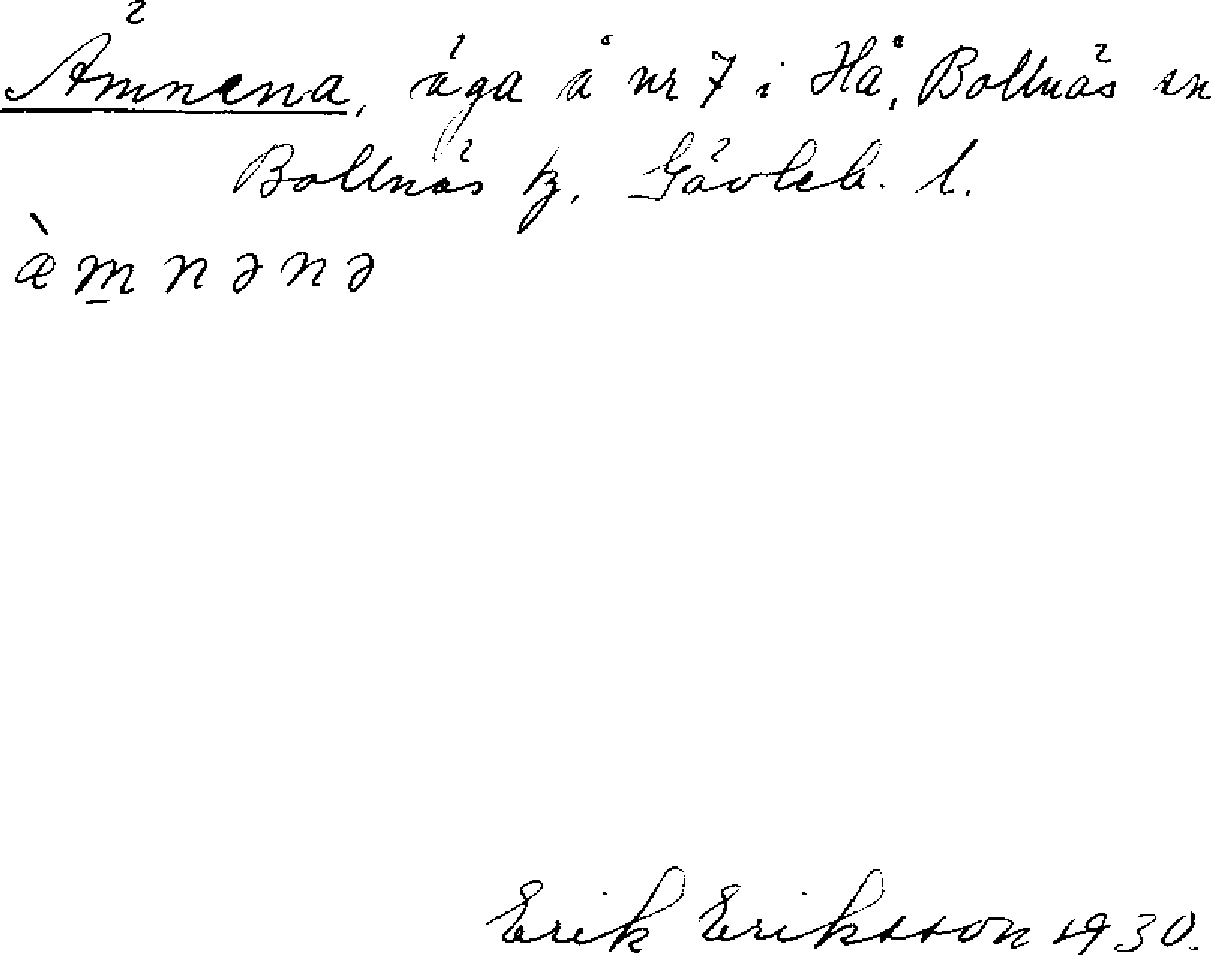 Ämnena, äga å nr 7 i Hå, Bollnäs sn
Bollnäs tg, Gävleb. l.
æ̀m̲nənə
Erik Eriksson 1930.